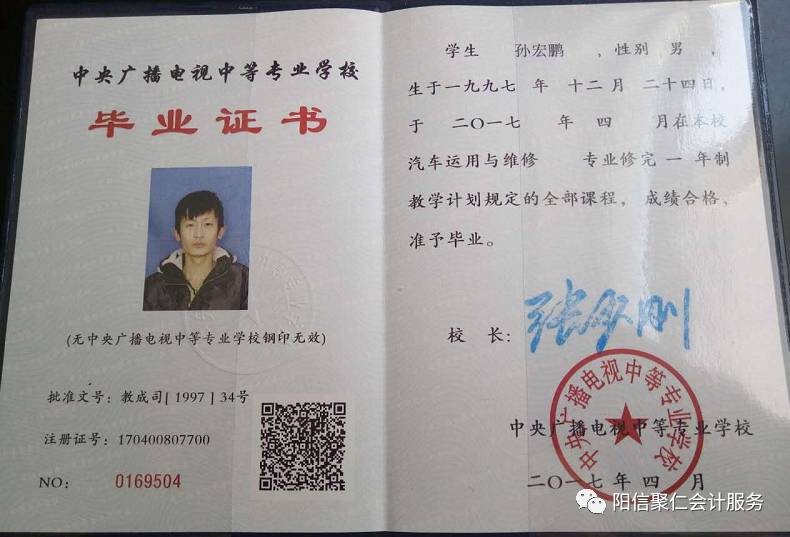 中央广播电视中等专业学校
毕业证书
(无中央广播电视中等专业学校钢印无效)
批准文号：教成司[1997]34号
注册证号：170400807700
NO： 0169504
学生 孙宏鹏 ，性别 男 ，
生于一九九七 年 十二 月 二十四日，
于 二〇一七 年 四 月在本校
汽车运用与维修 专业修完 一 年制
教学计划规定的全部课程，成绩合格、
准予毕业。
校 长：
中央广播电视中等专业学校
中央广播电视中等专业学校
二〇一七 年 四 月
阳信聚仁会计服务